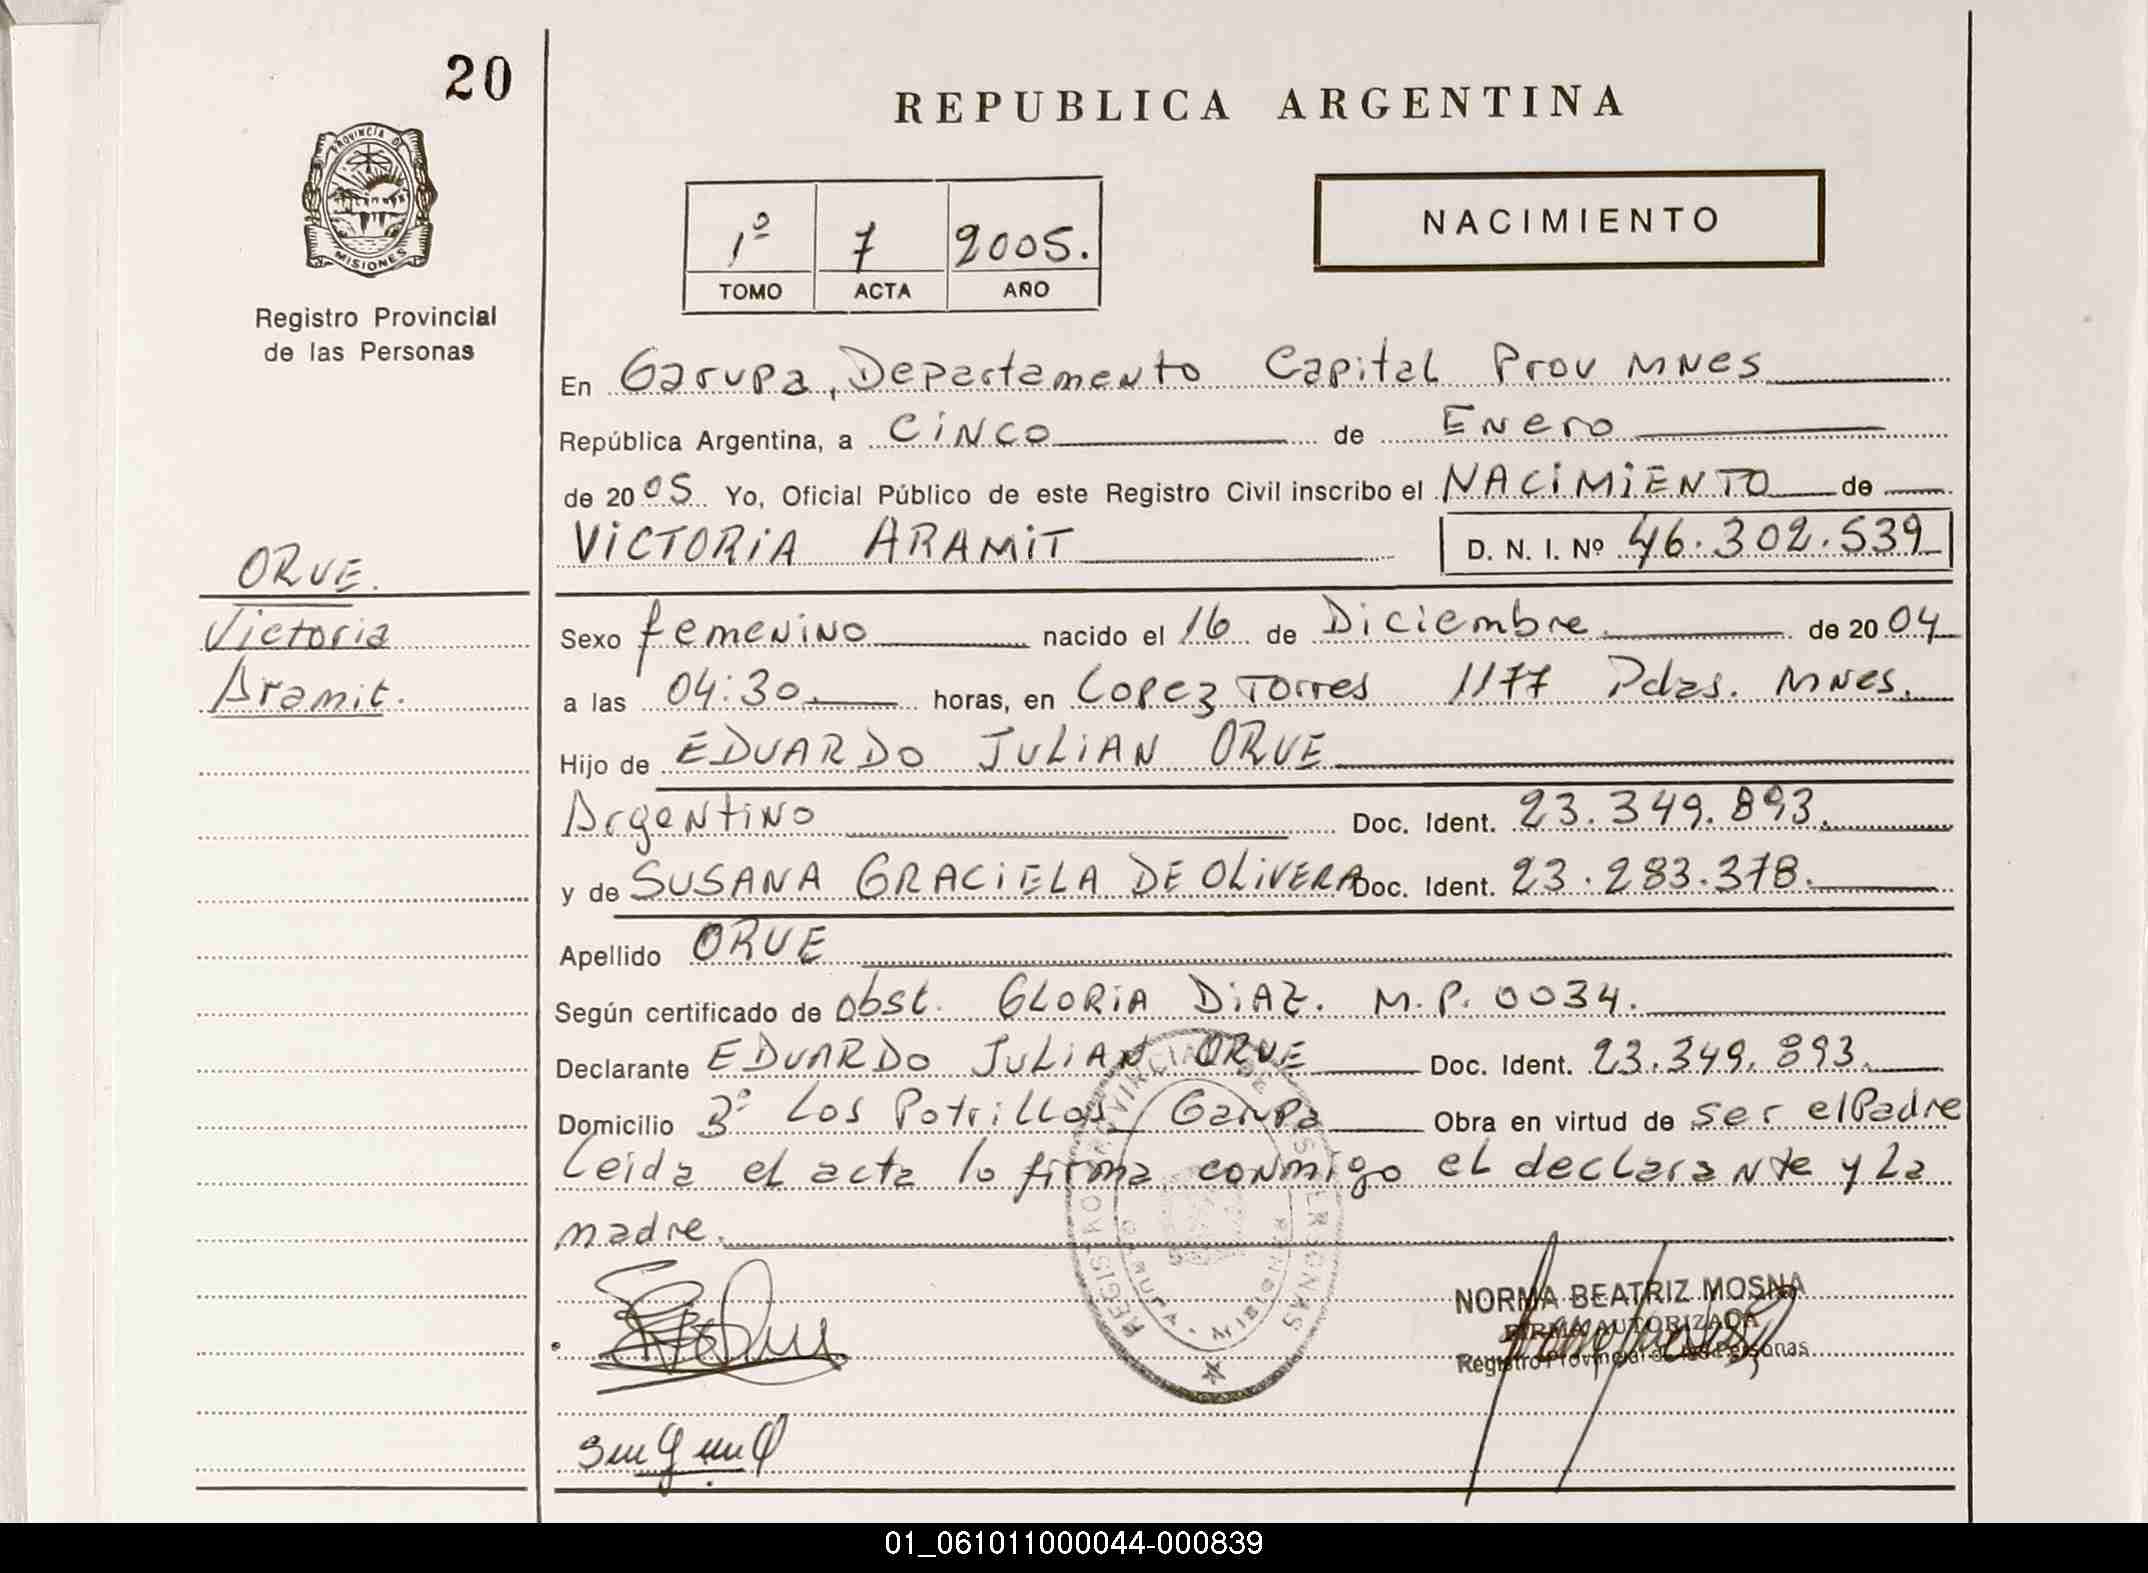 20
PROVINCIA DE
MISIONES
Registro Provincial
de las Personas
REPUBLICA ARGENTINA
1º 7 2005.
TOMO ACTA AÑO
NACIMIENTO
En Garupa, Departamento Capital Prov MNes
República Argentina, a CiNCO de ENero
de 2005 Yo, Oficial Público de este Registro Civil inscribo el NACiMiENTO de
VICTORiA ARAMiT D. N. I. Nº 46.302.539
ORVE.
Victoria
Aramit.
Sexo femeNiNo nacido el 16 de Diciembre de 2004
a las 04:30 horas, en Lopez Torres 1177 Pdas. MNes.
Hijo de EDUARDO JULiAN ORVE
ArgeNtiNo Doc. Ident. 23.349.893.
y de SUSANA GRACiELA DE OLiVERA Doc. Ident. 23.283.378.
Apellido ORVE
Según certificado de obst. GLORiA DiAZ. M.P. 0034.
Declarante EDUARDO JULiAN ORVE Doc. Ident. 23.349.893.
Domicilio Bº Los Potrillos Garupa Obra en virtud de ser el Padre
Leida el acta lo firma conmigo el declarante y La
madre.
REGISTRO PROVINCIAL DE LAS PERSONAS
GARUPA - MISIONES
NORMA BEATRIZ MOSNA
FIRMA AUTORIZADA
Registro Provincial de las Personas
01_061011000044-000839